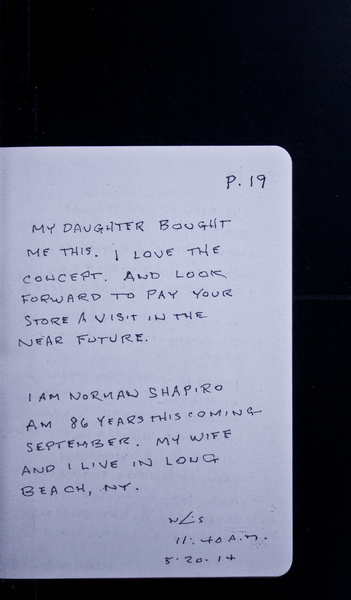 P. 19
MY DAUGHTER BOUGHT
ME THIS. I LOVE THE
CONCEPT. AND LOOK
FORWARD TO PAY YOUR
STORE A VISIT IN THE
NEAR FUTURE.
I AM NORMAN SHAPIRO
AM 86 YEARS THIS COMING
SEPTEMBER. MY WIFE
AND I LIVE IN LONG
BEACH, NY.
11:40 A.M.
5.20.14